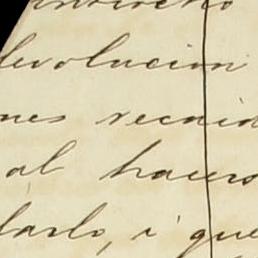 devolucion
nes recaid
al hacers
darlo, i que